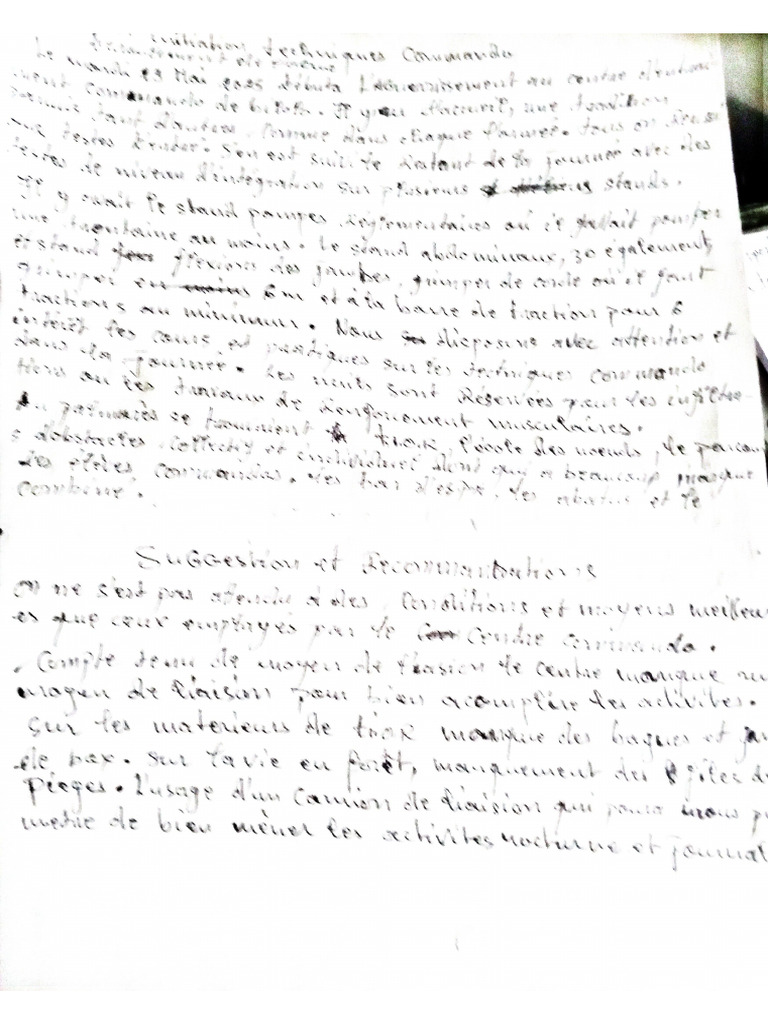 initiation techniques Commando
Le mardi 13 Mai 2025 débuta l'aguerrissement au centre d'entrai
ment Commando de . Il y eu l'accueil, une tradition
parmis tant d'autres. Comme dans chaque l'armée. tous on
aux testes d'entrer. S'en est suivi le restant de la journée avec des
testes de niveau d'intégration sur plusieurs stands.
il y avait le stand pompes réglementaires où il fallait pomper
une trentaine au moins. Le stand abdominaux, 30 également,
et stand flexions des jambes, grimper de corde où il faut
grimper en 6m et à la barre de traction pour 6
tractions au minimum. Nous disposiens avec attention et
intérêt les cours et pratiques sur les techniques commando
dans la journée. Les nuits sont réservées pour les infiltra-
tions ou les travaux de renforcement musculaires.
Au palmarès se trouvaient le l'école des noeuds, le parcou
s d'obstacles collectif et individuel dont qui a beaucoup marqué
les élèves commandos. les les abatus et le
combiné.
Suggestion et Recommandations
on ne s'est pas atendu à des Conditions et moyens meilleu
es que ceux employés par le centre commando.
. Compte tenu de moyen de liaison le centre manque au
moyen de liaison pour bien acomplire les activites.
Sur les materieux de manque des bagues et
de pax. Sur la vie en forêt, manquement des
Pièges. l'usage d'un Camion de liaision qui poura nous p
mettre de bien mèner les activites nocturne et journal